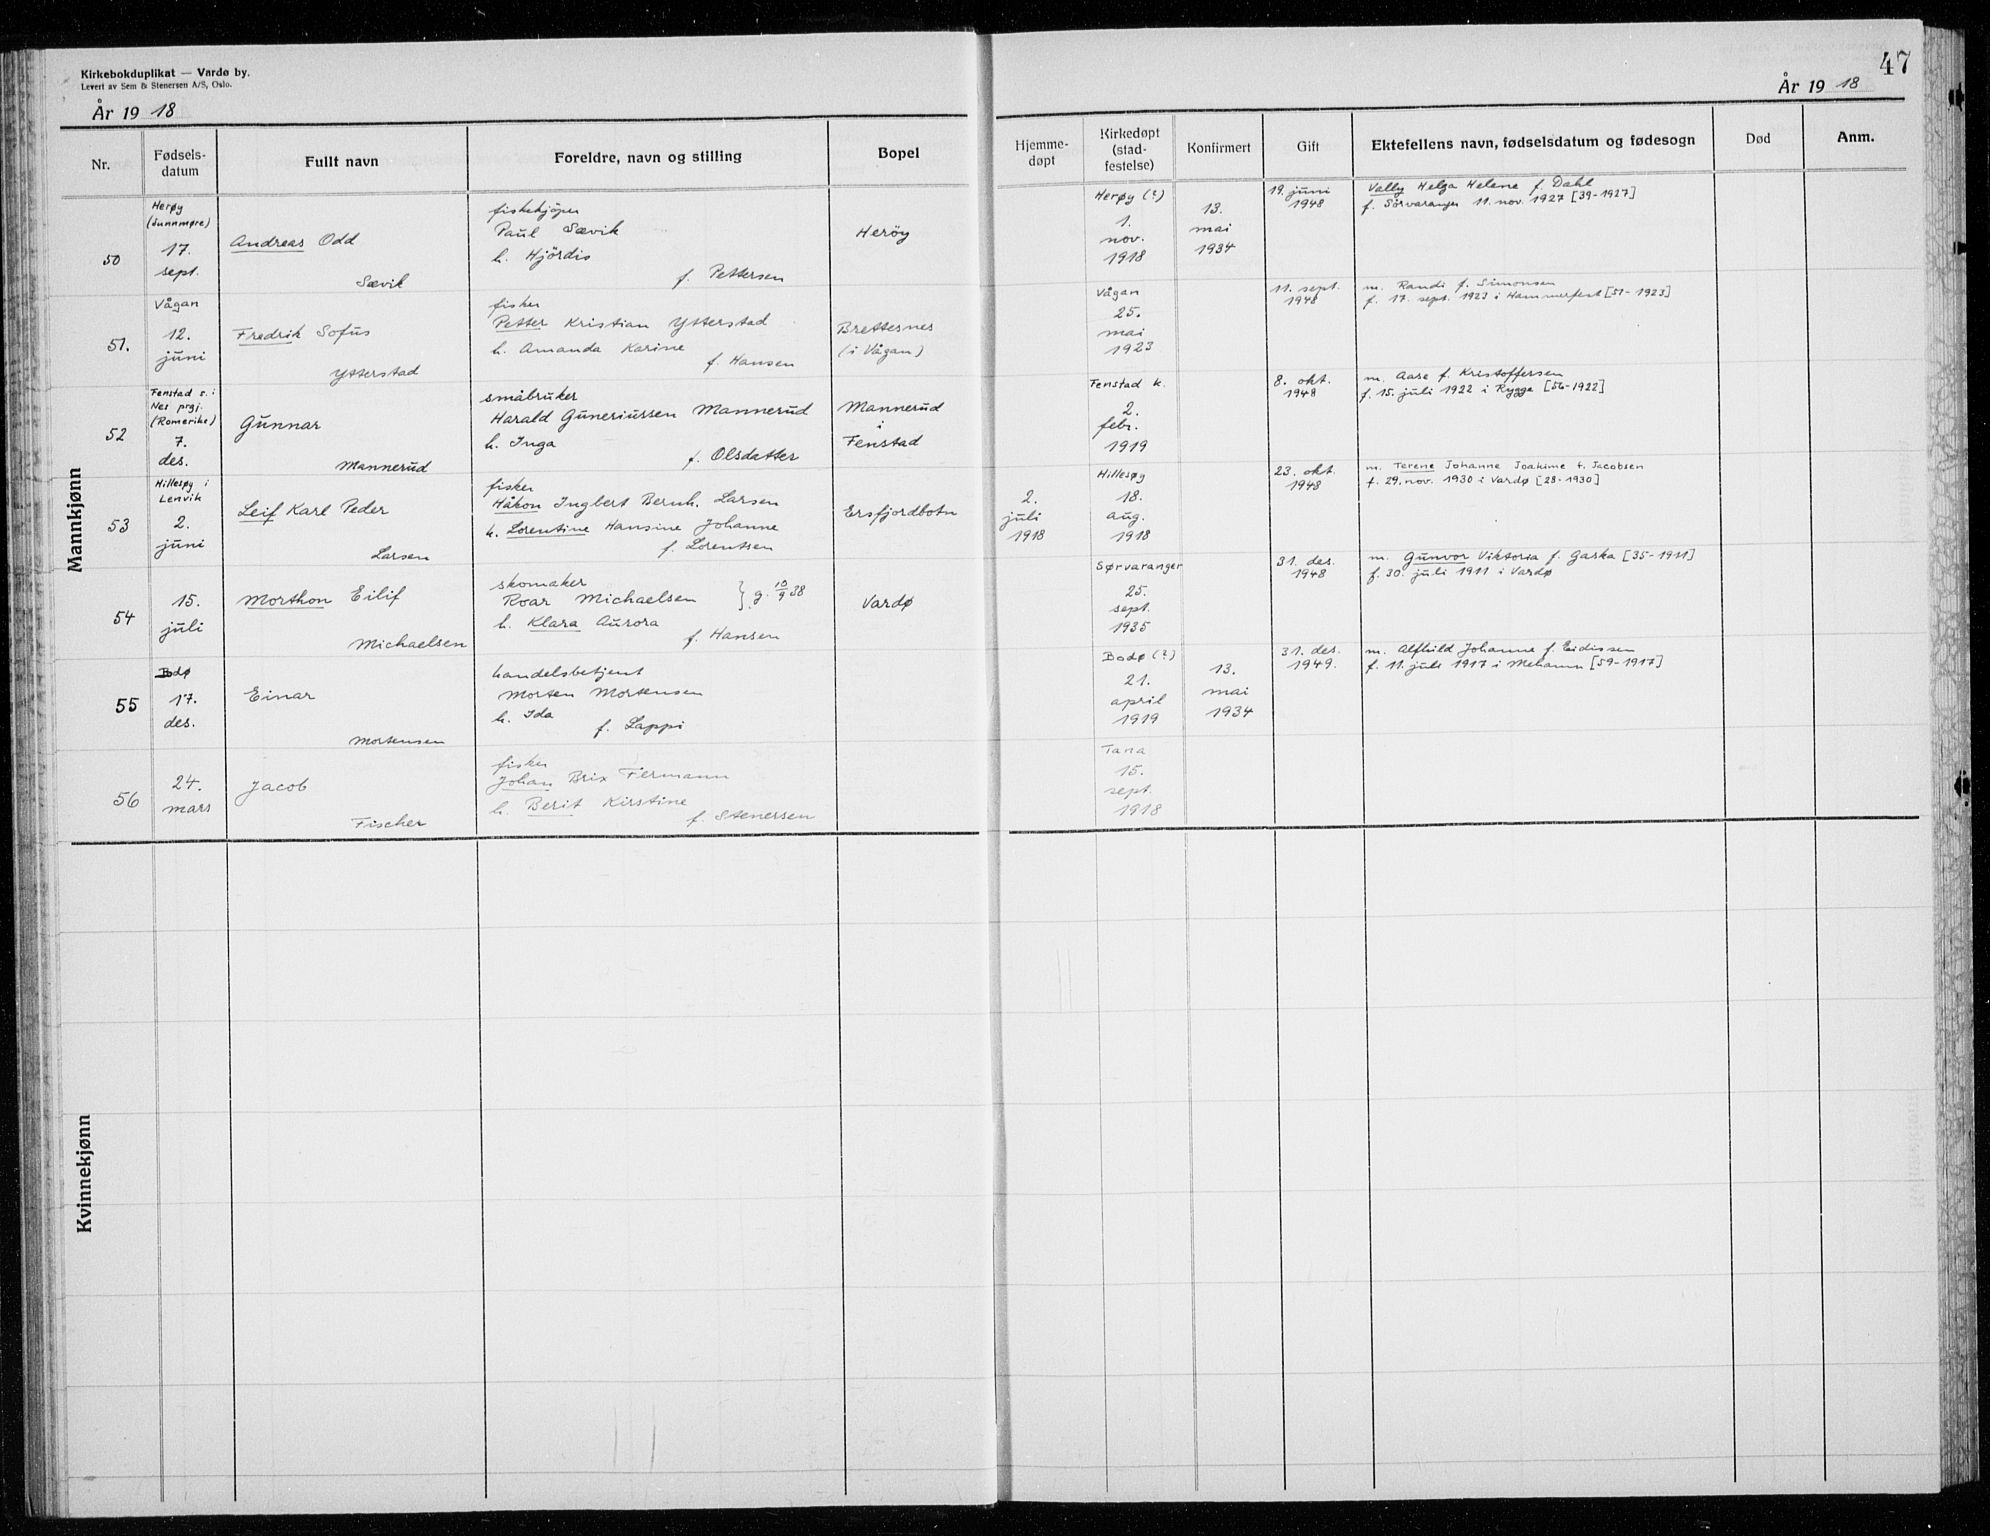 47
Kirkebokduplikat — Vardø by.
Levert av Sem & Stenersen A/S, Oslo.
År 19 18
År 19 18
Nr.
Fødsels-
datum
Fullt navn
Foreldre, navn og stilling
Bopel
Hjemme-
døpt
Kirkedøpt
(stad-
festelse)
Konfirmert
Gift
Ektefellens navn, fødselsdatum og fødesogn
Død
Anm.
Mannkjønn
50
Herøy
(Sunnmøre)
17.
sept.
Andreas Odd
Sævik
fiskekjøper
Paul Sævik
h. Hjördis
f. Pettersen
Herøy
Herøy (?)
1.
nov.
1918
13.
mai
1934
19. juni
1948
Vally Helga Helene f. Dahl
f. Sørvaranger 11. nov. 1927 [39-1927]
51.
Vågan
12.
juni
Fredrik Sofus
Ytterstad
fisker
Petter Kristian Ytterstad
h. Amanda Karine
f. Hansen
Brettesnes
(i Vågan)
Vågan
25.
mai
1923
11. sept.
1948
m. Randi f. Simonsen
f. 17. sept. 1923 i Hammerfest [51-1923]
52
Fenstad s. i
Nes prgj.
(Romerike)
7.
des.
Gunnar
Mannerud
småbruker
Harald Guneriussen Mannerud
h. Inga
f. Olsdatter
Mannerud
i
Fenstad
Fenstad k.
2.
febr.
1919
8. okt.
1948
m. Aase f. Kristoffersen
f. 15. juli 1922 i Rygge [56-1922]
53
Hillesøy i
Lenvik
2.
juni
Leif Karl Peder
Larsen
fisker
Håkon Ingbert Bernh. Larsen
h. Lorentine Hansine Johanne
f. Lorentsen
Ersfjordbotn
2.
juli
1918
Hillesøy
18.
aug.
1918
23. okt.
1948
m. Terene Johanne Joakime f. Jacobsen
f. 29. nov. 1930 i Vardø [28-1930]
54
15.
juli
Morthon Eilif
Michaelsen
skomaker
Roar Michaelsen } g. 10/9 38
h. Klara Aurora
f. Hansen
Vardø
Sørvaranger
25.
sept.
1935
31. des.
1948
m. Gunvor Viktoria f. Gaska [35-1911]
f. 30. juli 1911 i Vardø
55
Bodø
17.
des.
Einar
Mortensen
handelsbetjent
Morten Mortensen
h. Ida
f. Lappi
Bodø (?)
21.
april
1919
13.
mai
1934
31. des.
1949.
m. Alfhild Johanne f. Eidissen
f. 11. juli 1917 i Mehamn [59-1917]
56
24.
mars
Jacob
Fischer
fisker
Johan Brix Fermann
h. Berit Kirstine
f. Stenersen
Tana
15.
sept.
1918
Kvinnekjønn